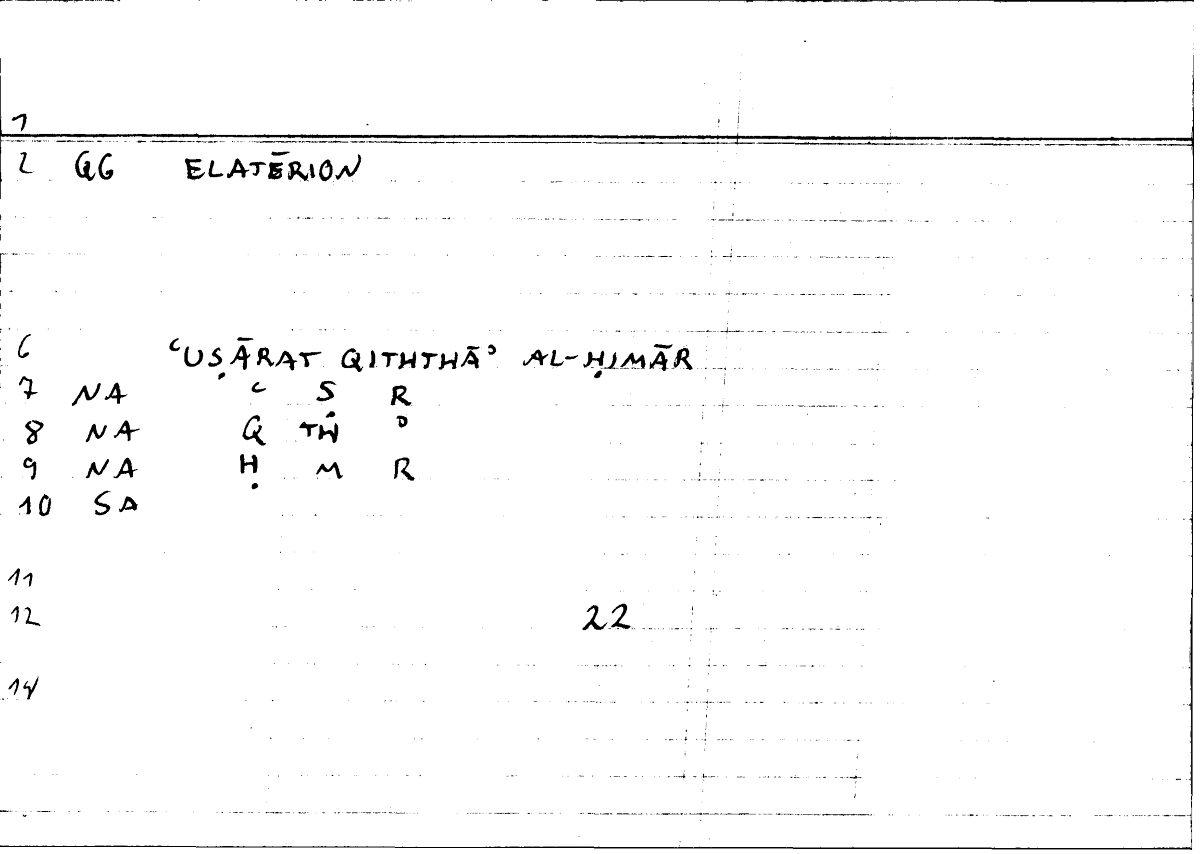 1
2 QG ELATĒRION
6 ʿUṢĀRAT QITHTHĀʾ AL-ḤIMĀR
7 NA ʿ Ṣ R
8 NA Q TH ʾ
9 NA Ḥ M R
10 SA
11
12 22
14